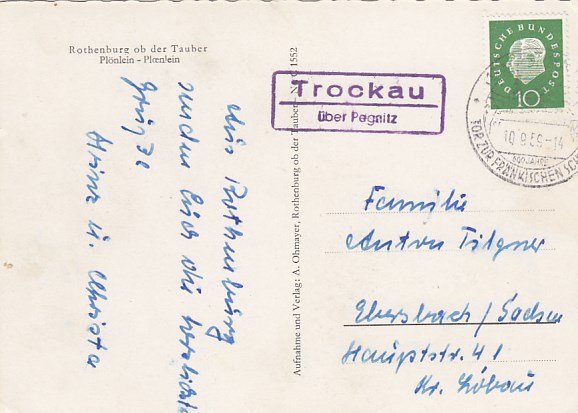 Rothenburg ob der Tauber
Plönlein - Plœnlein
Aus Rothenburg
senden Euch die herzlichsten
Grüße
Heinz u. Christa
Aufnahme und Verlag: A. Ohmayer, Rothenburg ob der Tauber - Nr. C 1552
Trockau
über Pegnitz
DEUTSCHE BUNDESPOST
10
10.8.59-14
800 JAHRE
TOR ZUR FRÄNKISCHEN SCH
Familie
Anton Tilgner
Ebersbach / Sachsen
Hauptstr. 41
Kr. Löbau